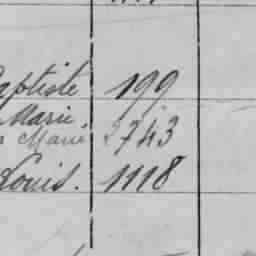 aptiste 199
Marie,
Marie 2743
Louis. 1118